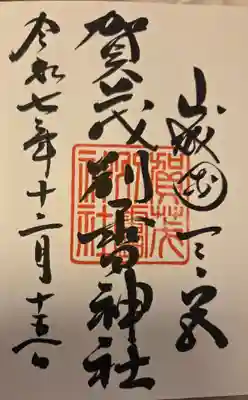 山城国一之宮
賀茂別雷神社
令和七年十二月十五日
賀茂
別雷
神社